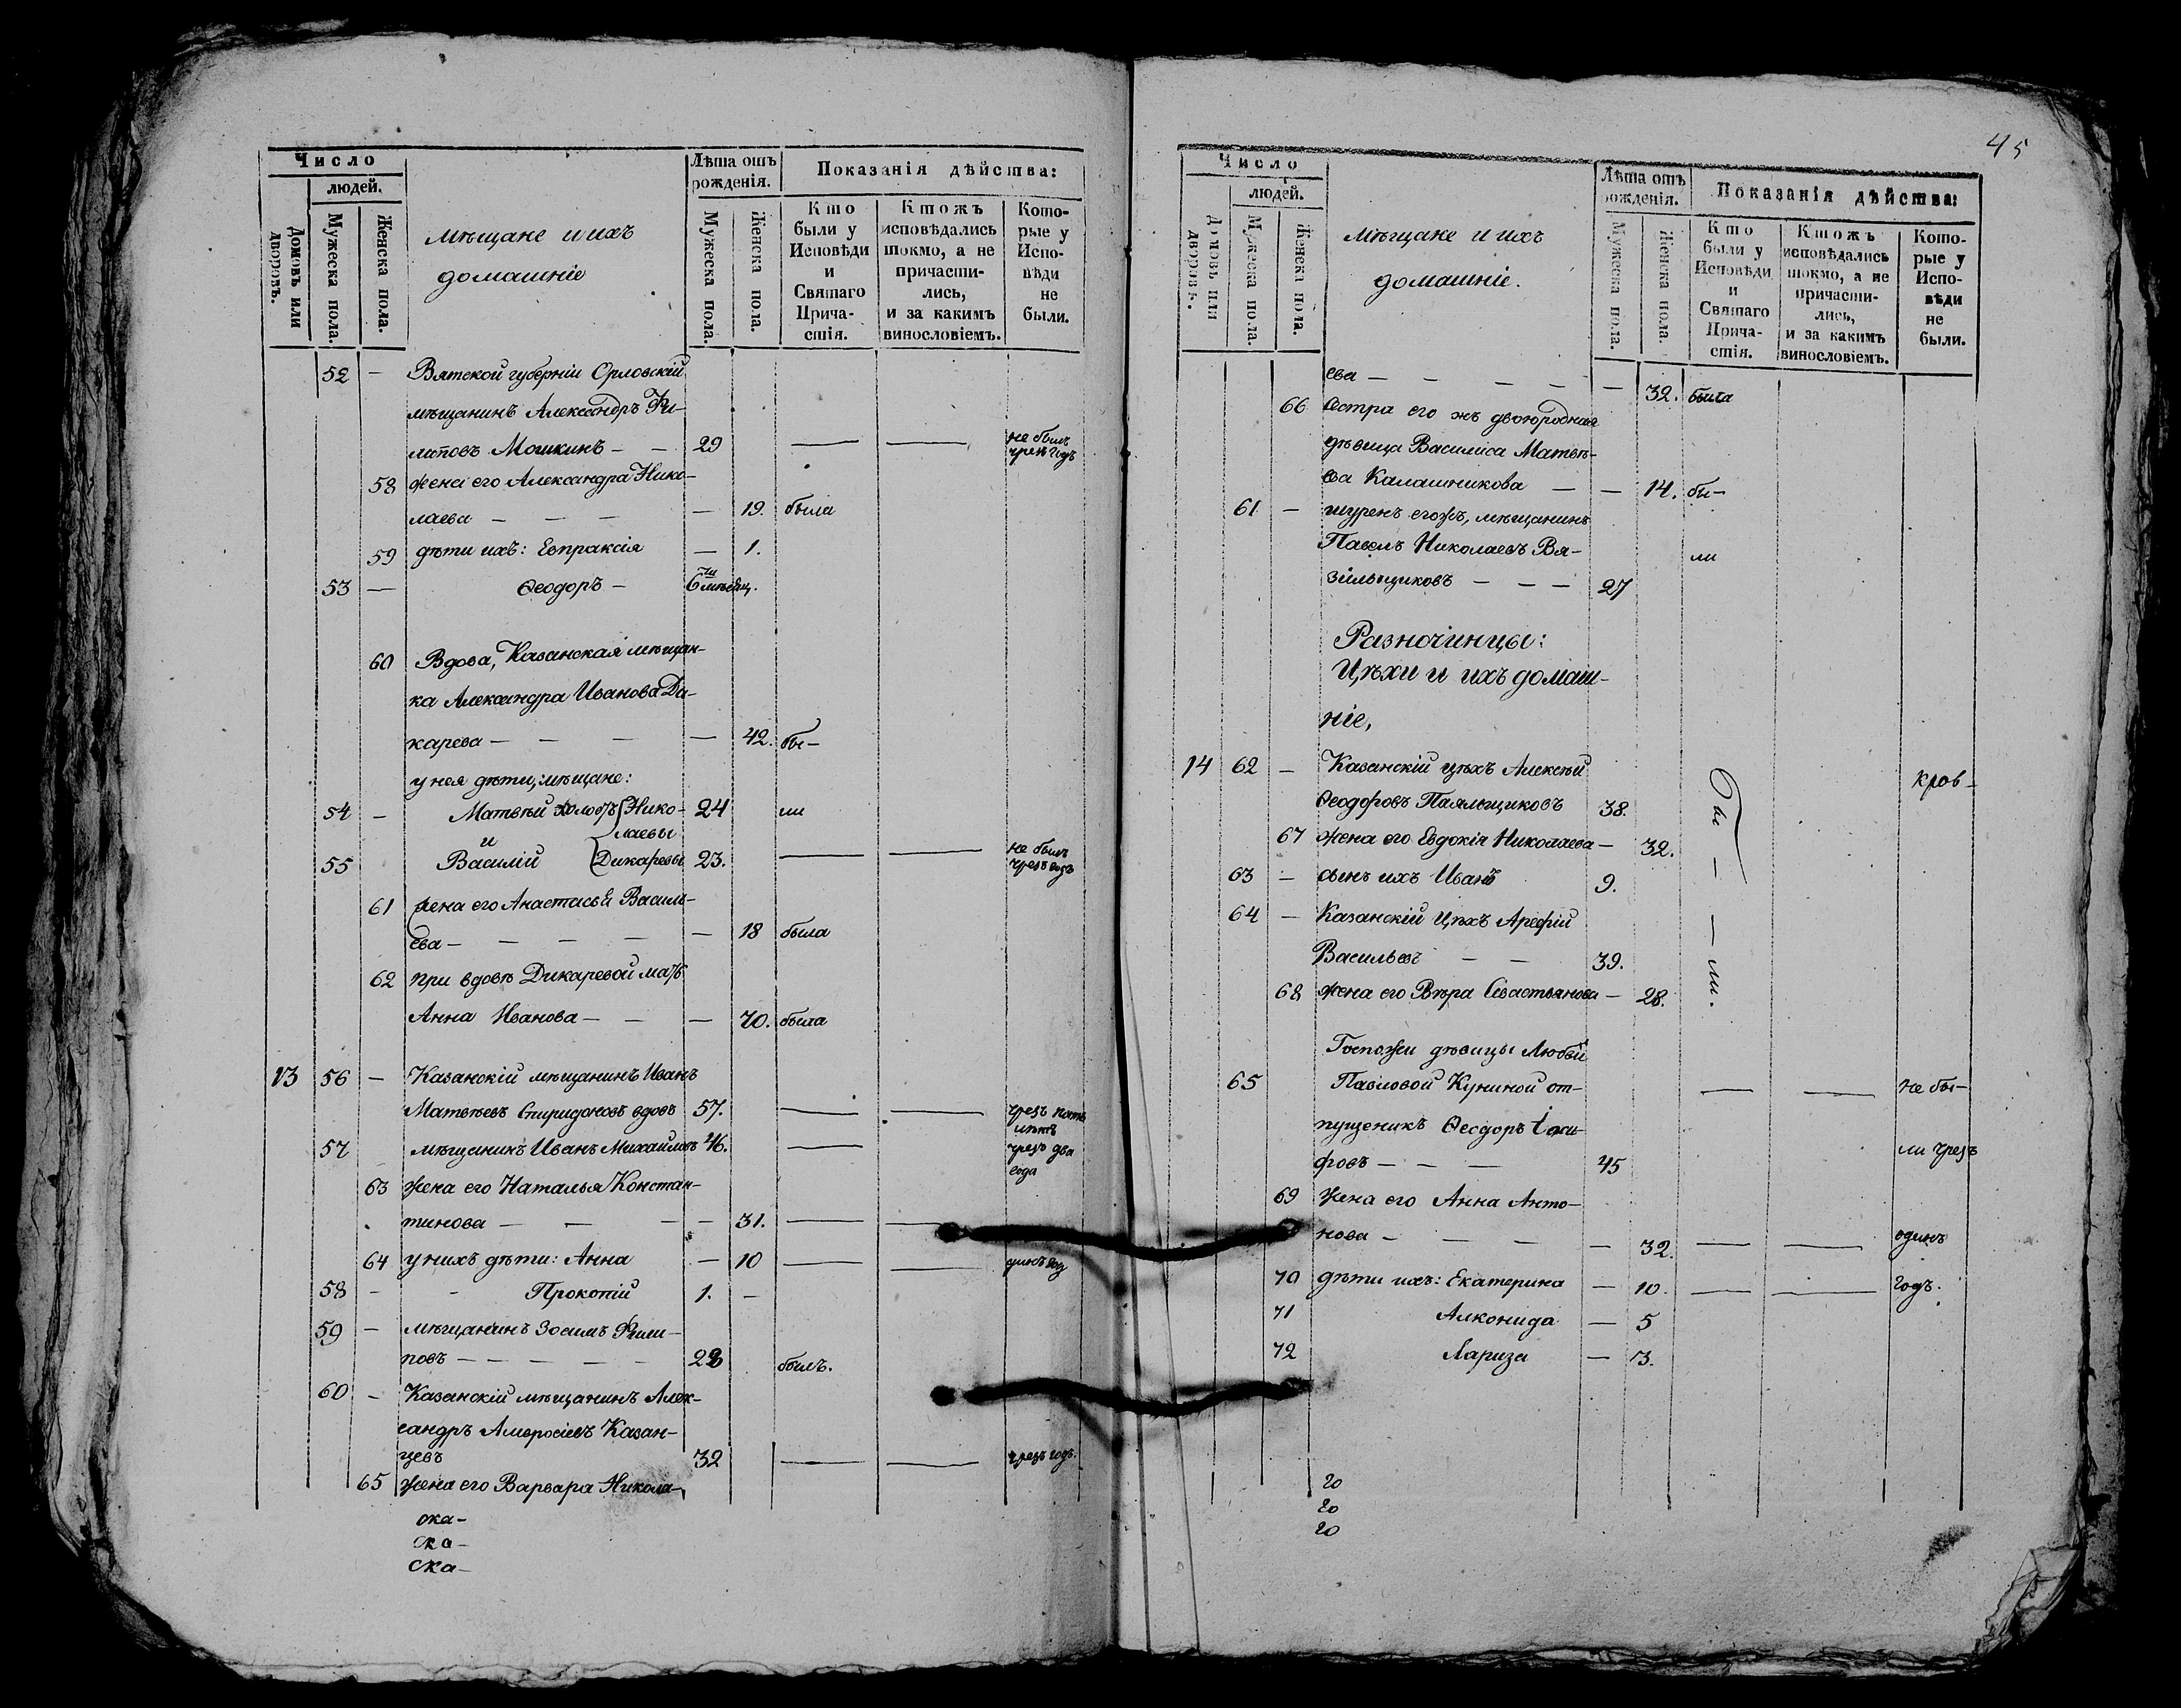 Число
людей.
Домовъ или дворовъ.
Мужеска пола.
Женска пола.
мѣщане и ихъ
домашніе
Лѣта отъ
рожденія.
Мужеска пола.
Женска пола.
Показанія дѣйства:
Кто были у Исповѣди и Святаго Прича-стія.
Ктожъ исповѣдались токмо, а не причасти-лись, и за какимъ винословіемъ.
Кото-рые у Испо-вѣди не были.
52 — Вятской губерніи Орловскій
мѣщанинъ Александръ Фи-
липовъ Мошкинъ — — 29 — — не былъ чрезъ годъ
58 жена его Александра Нико-
лаева — — — — 19. была
59 дѣти ихъ: Евпраксія — 1.
53 — Ѳеодоръ — 6 мѣсяц.
60 Вдова, Казанская мѣщан-
ка Александра Иванова Ди-
карева — — — — 42. бы-
у нея дѣти, мѣщане:
54 — Матвѣй холостъ Нико- 24 ли
и лаевы
55 Василій Дикаревы 23. — — не былъ чрезъ годъ
61 жена его Анастасья Василь-
ева — — — — — 18 была
62 при вдовѣ Дикаревой мать
Анна Иванова — — — 70. была
13 56 — Казанскій мѣщанинъ Иванъ
Матвѣевъ Спиридоновъ вдовъ 57. — — чрезъ пять лѣтъ
57 мѣщанинъ Иванъ Михайловъ 46. — чрезъ два года
63 жена его Наталья Констан-
тинова — — — — 31. — —
64 у нихъ дѣти: Анна — 10 — —
58 - - Прокопій 1. —
59 — мѣщанинъ Зосимъ Фили-
повъ — — — — — 28 былъ.
60 — Казанскій мѣщанинъ Алек-
сандръ Амвросіевъ Казан-
цевъ 32 — — чрезъ годъ.
65 жена его Варвара Никола-
ска-
ска-
ска-
45
Число
людей.
Домовъ или дворовъ.
Мужеска пола.
Женска пола.
мѣщане и ихъ
домашніе.
Лѣта отъ
рожденія.
Мужеска пола.
Женска пола.
Показанія дѣйства:
Кто были у Исповѣди и Святаго Прича-стія.
Ктожъ исповѣдались токмо, а не причасти-лись, и за какимъ винословіемъ.
Кото-рые у Испо-вѣди не были.
ева — — — — — 32. была
66 сестра его жъ двоюродная
дѣвица Василиса Матвѣ-
ева Калашникова — — 14. бы-
61 — шуринъ егожъ, мѣщанинъ
Павелъ Николаевъ Вя- ли
зильщиковъ — — — 27
Разночинцы:
Цѣхи и ихъ домаш-
ніе,
14 62 — Казанскій цѣхъ Алексѣй
Ѳеодоровъ Паяльщиковъ 38.
67 жена его Евдокія Николаева — 32.
63 — сынъ ихъ Иванъ 9.
бы — — ли.
64 — Казанскій цѣхъ Арефій
Васильевъ — — 39.
68 жена его Вѣра Севастьянова — 28.
Госпожи дѣвицы Любви
65 Павловой Куниной от- — — не бы-
пущеникъ Ѳеодоръ
фовъ — — — 45 ли чрезъ
69 жена его Анна Анто-
нова — — — — — 32. — — одинъ
70 дѣти ихъ: Екатерина — 10. — — годъ.
71 Алконида — 5
72 Лариза — 3.
го
го
го